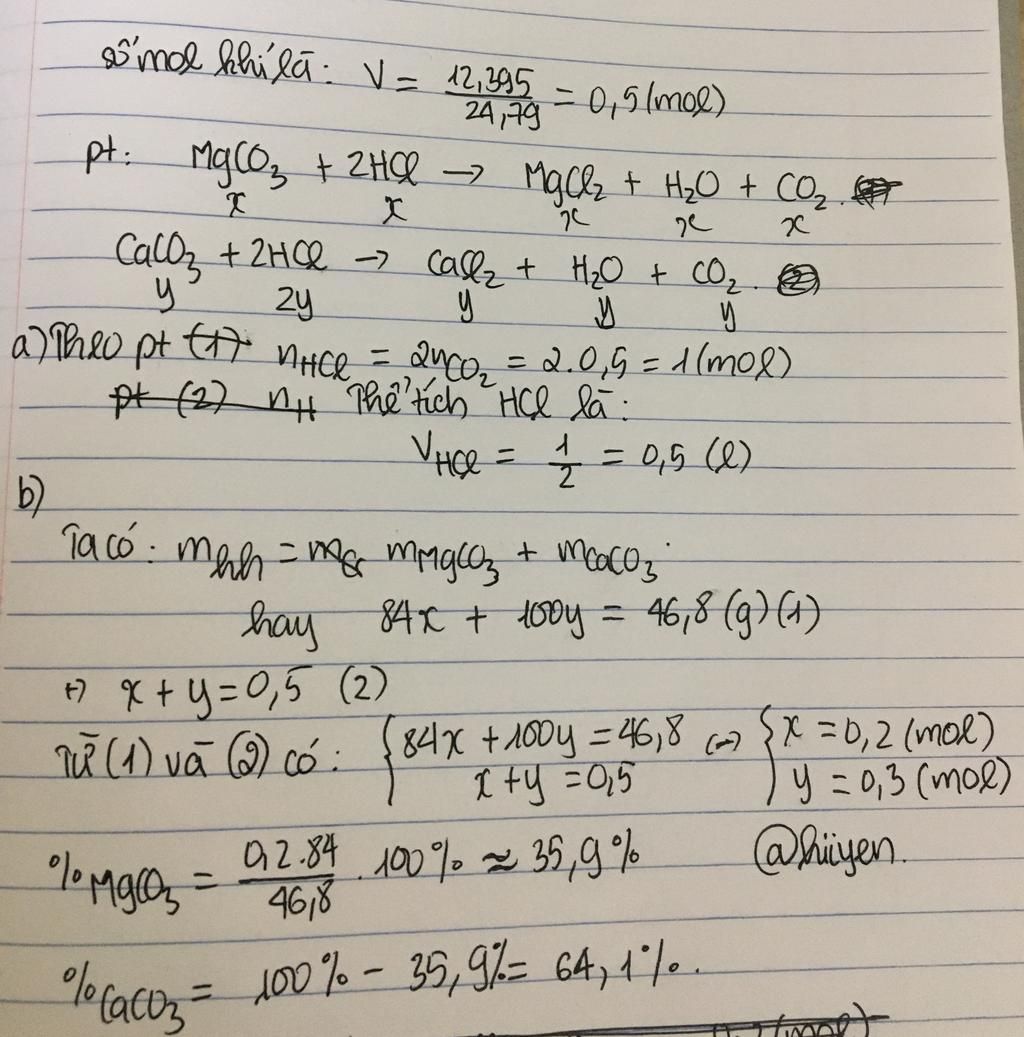 số mol khí là: V = 12,395 / 24,79 = 0,5 (mol)
pt: MgCO3 + 2HCl → MgCl2 + H2O + CO2.
x x x x x
CaCO3 + 2HCl → CaCl2 + H2O + CO2.
y 2y y y y
a) Theo pt (1) nHCl = 2nCO2 = 2.0,5 = 1 (mol)
pt (2) nH Thể tích HCl là:
VHCl = 1/2 = 0,5 (l)
b)
Ta có: mhh = mMgCO3 + mCaCO3
hay 84x + 100y = 46,8 (g) (1)
x + y = 0,5 (2)
Từ (1) và (2) có: { 84x + 100y = 46,8 x + y = 0,5 ⇔ { x = 0,2 (mol) y = 0,3 (mol)
%MgCO3 = 0,2.84 / 46,8 . 100% ≈ 35,9%
@hiiyen.
%CaCO3 = 100% - 35,9% = 64,1%.